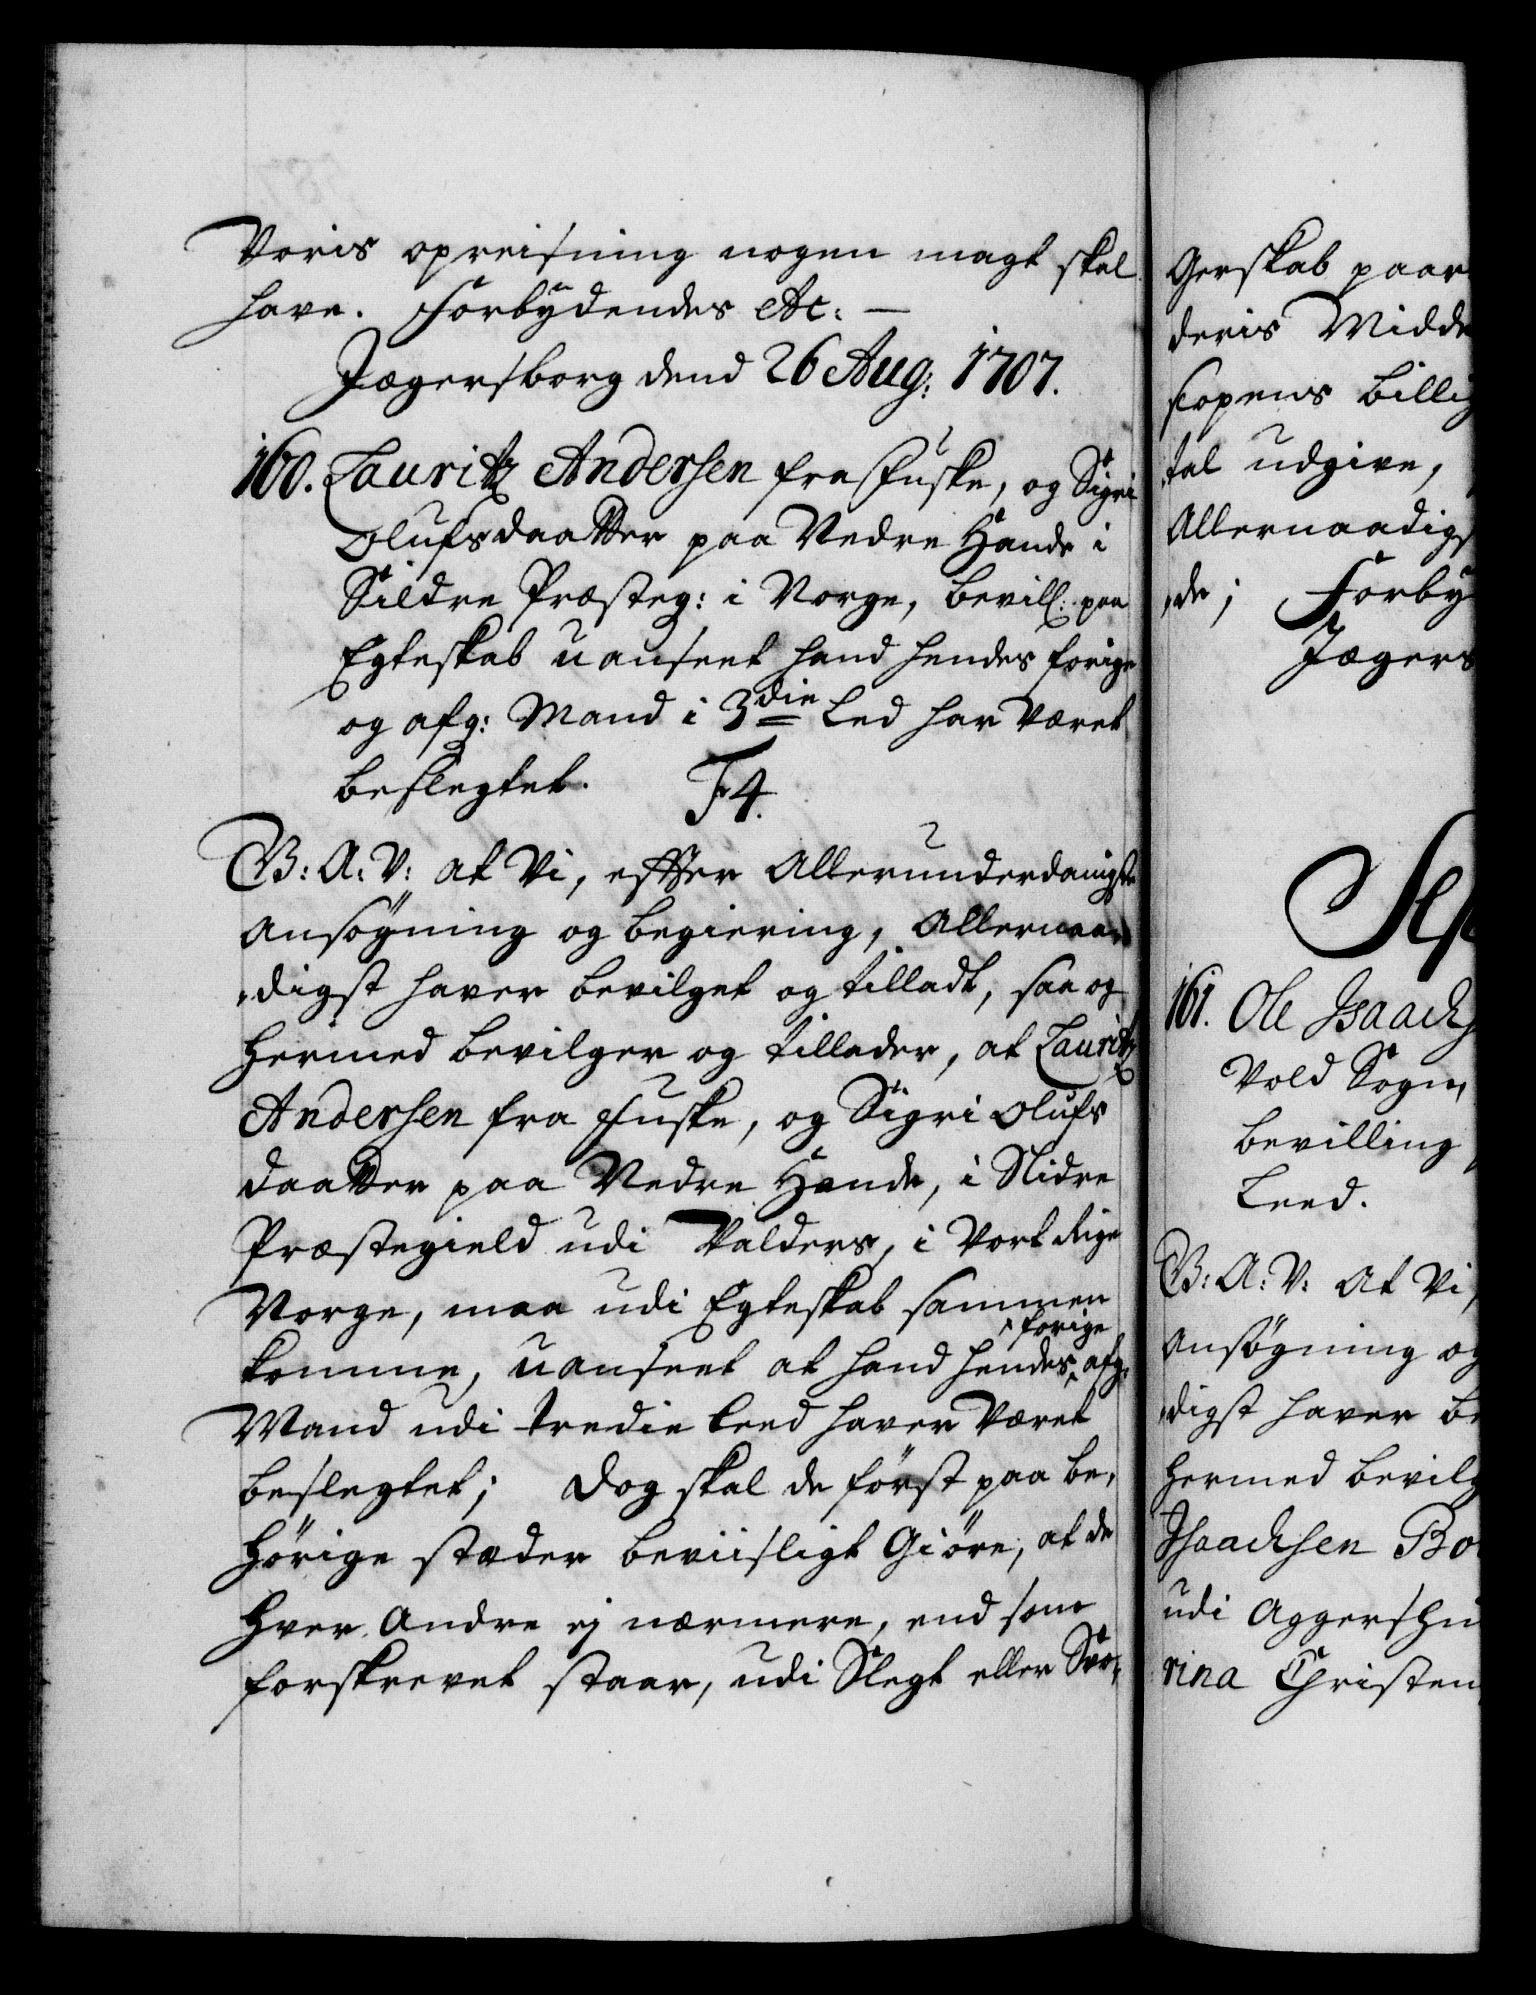 Voris opreisning nogen magt skal
have. Forbydendes etc:
Jægersborg dend 26 Aug: 1707.
160. Lauritz Andersen fra Fuske, og Sigri
Olufsdaatter paa Nedre Hande i
Sildre Præsteg: i Norge, bevill: paa
Egteskab uanseet hand hendes forige
og afg: Mand i 3die Led har været
beslegtet. F4.
B: A: V: at Vi, effter Allerunderdanigste
Ansøgning og begiering, Allernaa-
digst haver bevilget og tilladt, saa og
hermed bevilger og tillader, at Lauritz
Andersen fra Fuske, og Sigri Olufs
daatter paa Nedre Hande, i Slidre
Præstegield udi Valders, i Vort Rige
Norge, maa udi Egteskab sammen
komme, uanseet at hand hendes forige afg:
Mand udi tredie Leed haver været
beslegtet; Dog skal de først paa be-
hørige stæder beviisligt Giøre, at de
hver Andre ej nærmere, end som
forskrevet staar, udi Slegt eller Svo-
Gerskab paar
deris Midde
scopens billig
tal udgive,
Allernaadigs
de; Forby
Jægers
Sep
161. Ole Isaachs
Vold Sogn,
bevilling
Leed.
B: A: V: At Vi,
Ansøgning og
digst haver be
hermed bevilg
Isaachsen Bo
udi Aggershu
rina Christen